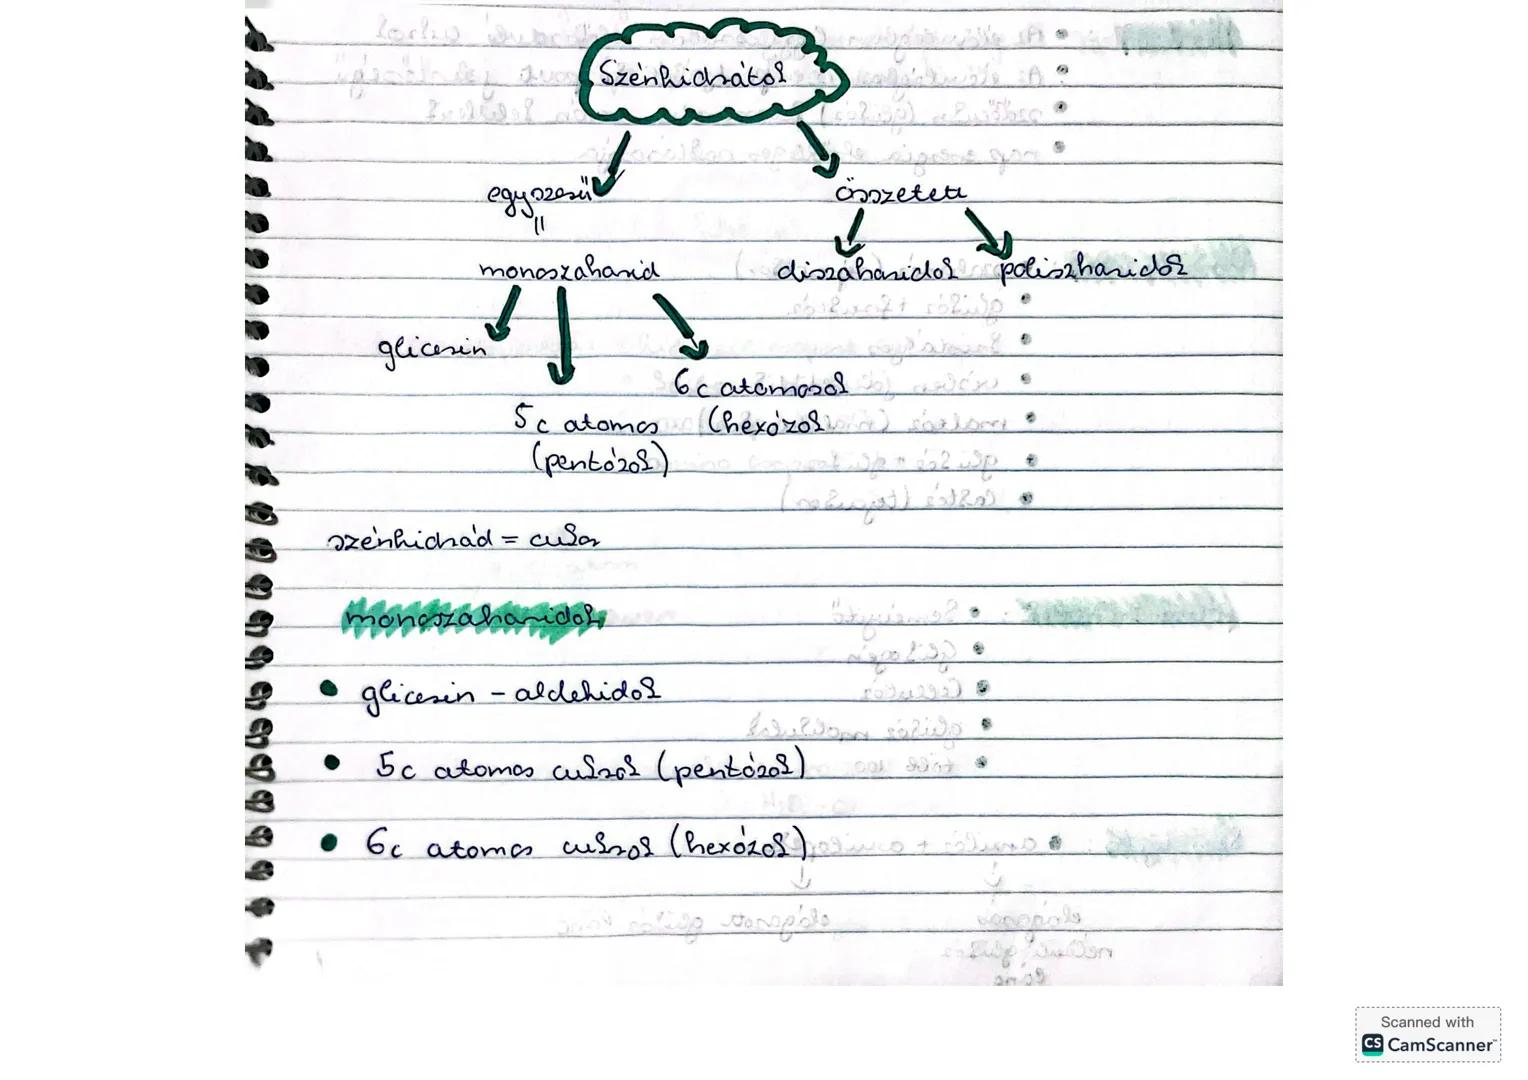 Szénhidrátok
egyszerű összetett
=
monoszaharid diszaharidok poliszharidok
glicerin
6c atomosok
5c atomos (hexózok
(pentózok)
szénhidrád = cukor
monoszaharidok
• glicerin - aldehidok
• 5c atomos cukrok (pentózok)
• 6c atomos cukrok (hexózok)
Scanned with
CS CamScanner